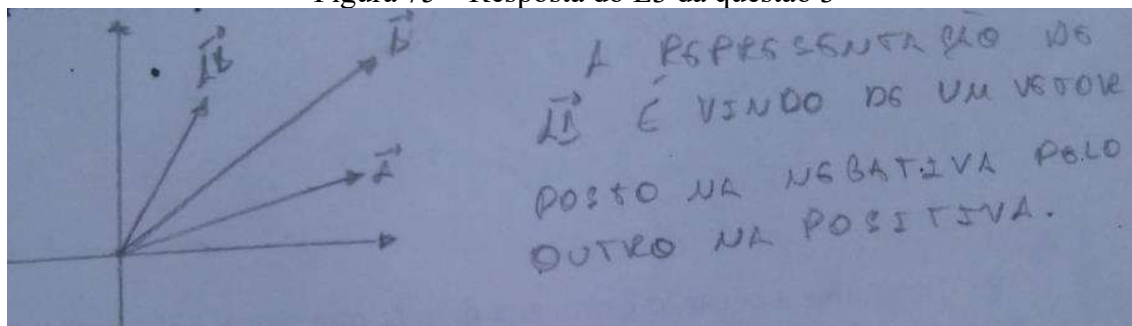 Figura 75 – Resposta do E5 da questão 3
B
A
A REPRESENTAÇÃO DE
É VINDO DE UM VETOR
POSTO NA NEGATIVA PELO
OUTRO NA POSITIVA.